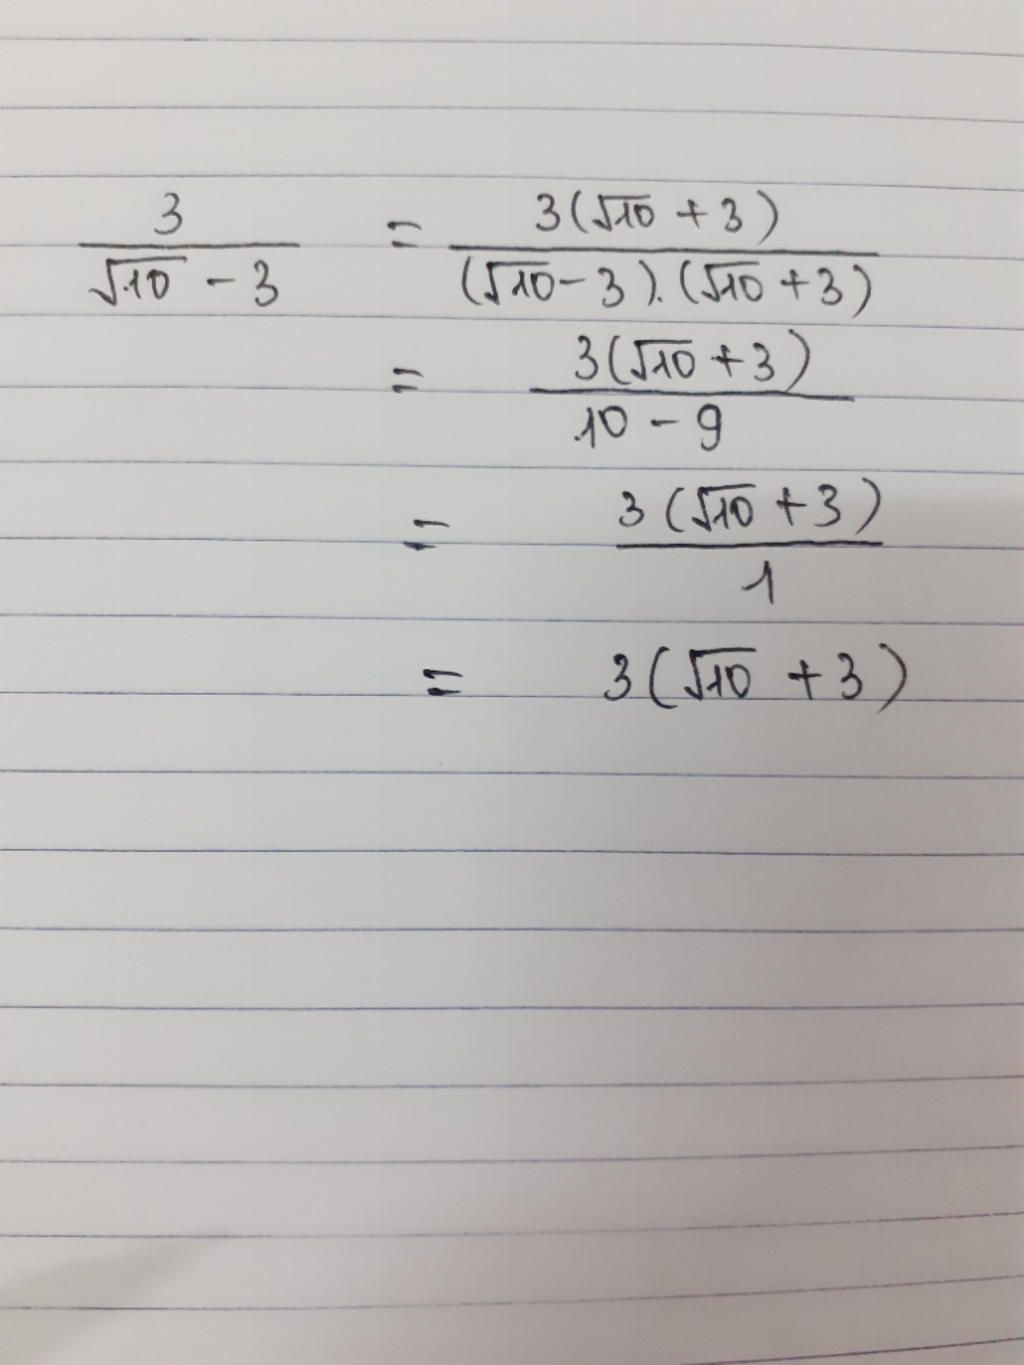 3/(√10 - 3) = 3(√10 + 3)/((√10 - 3).(√10 + 3))
= 3(√10 + 3)/(10 - 9)
= 3(√10 + 3)/1
= 3(√10 + 3)